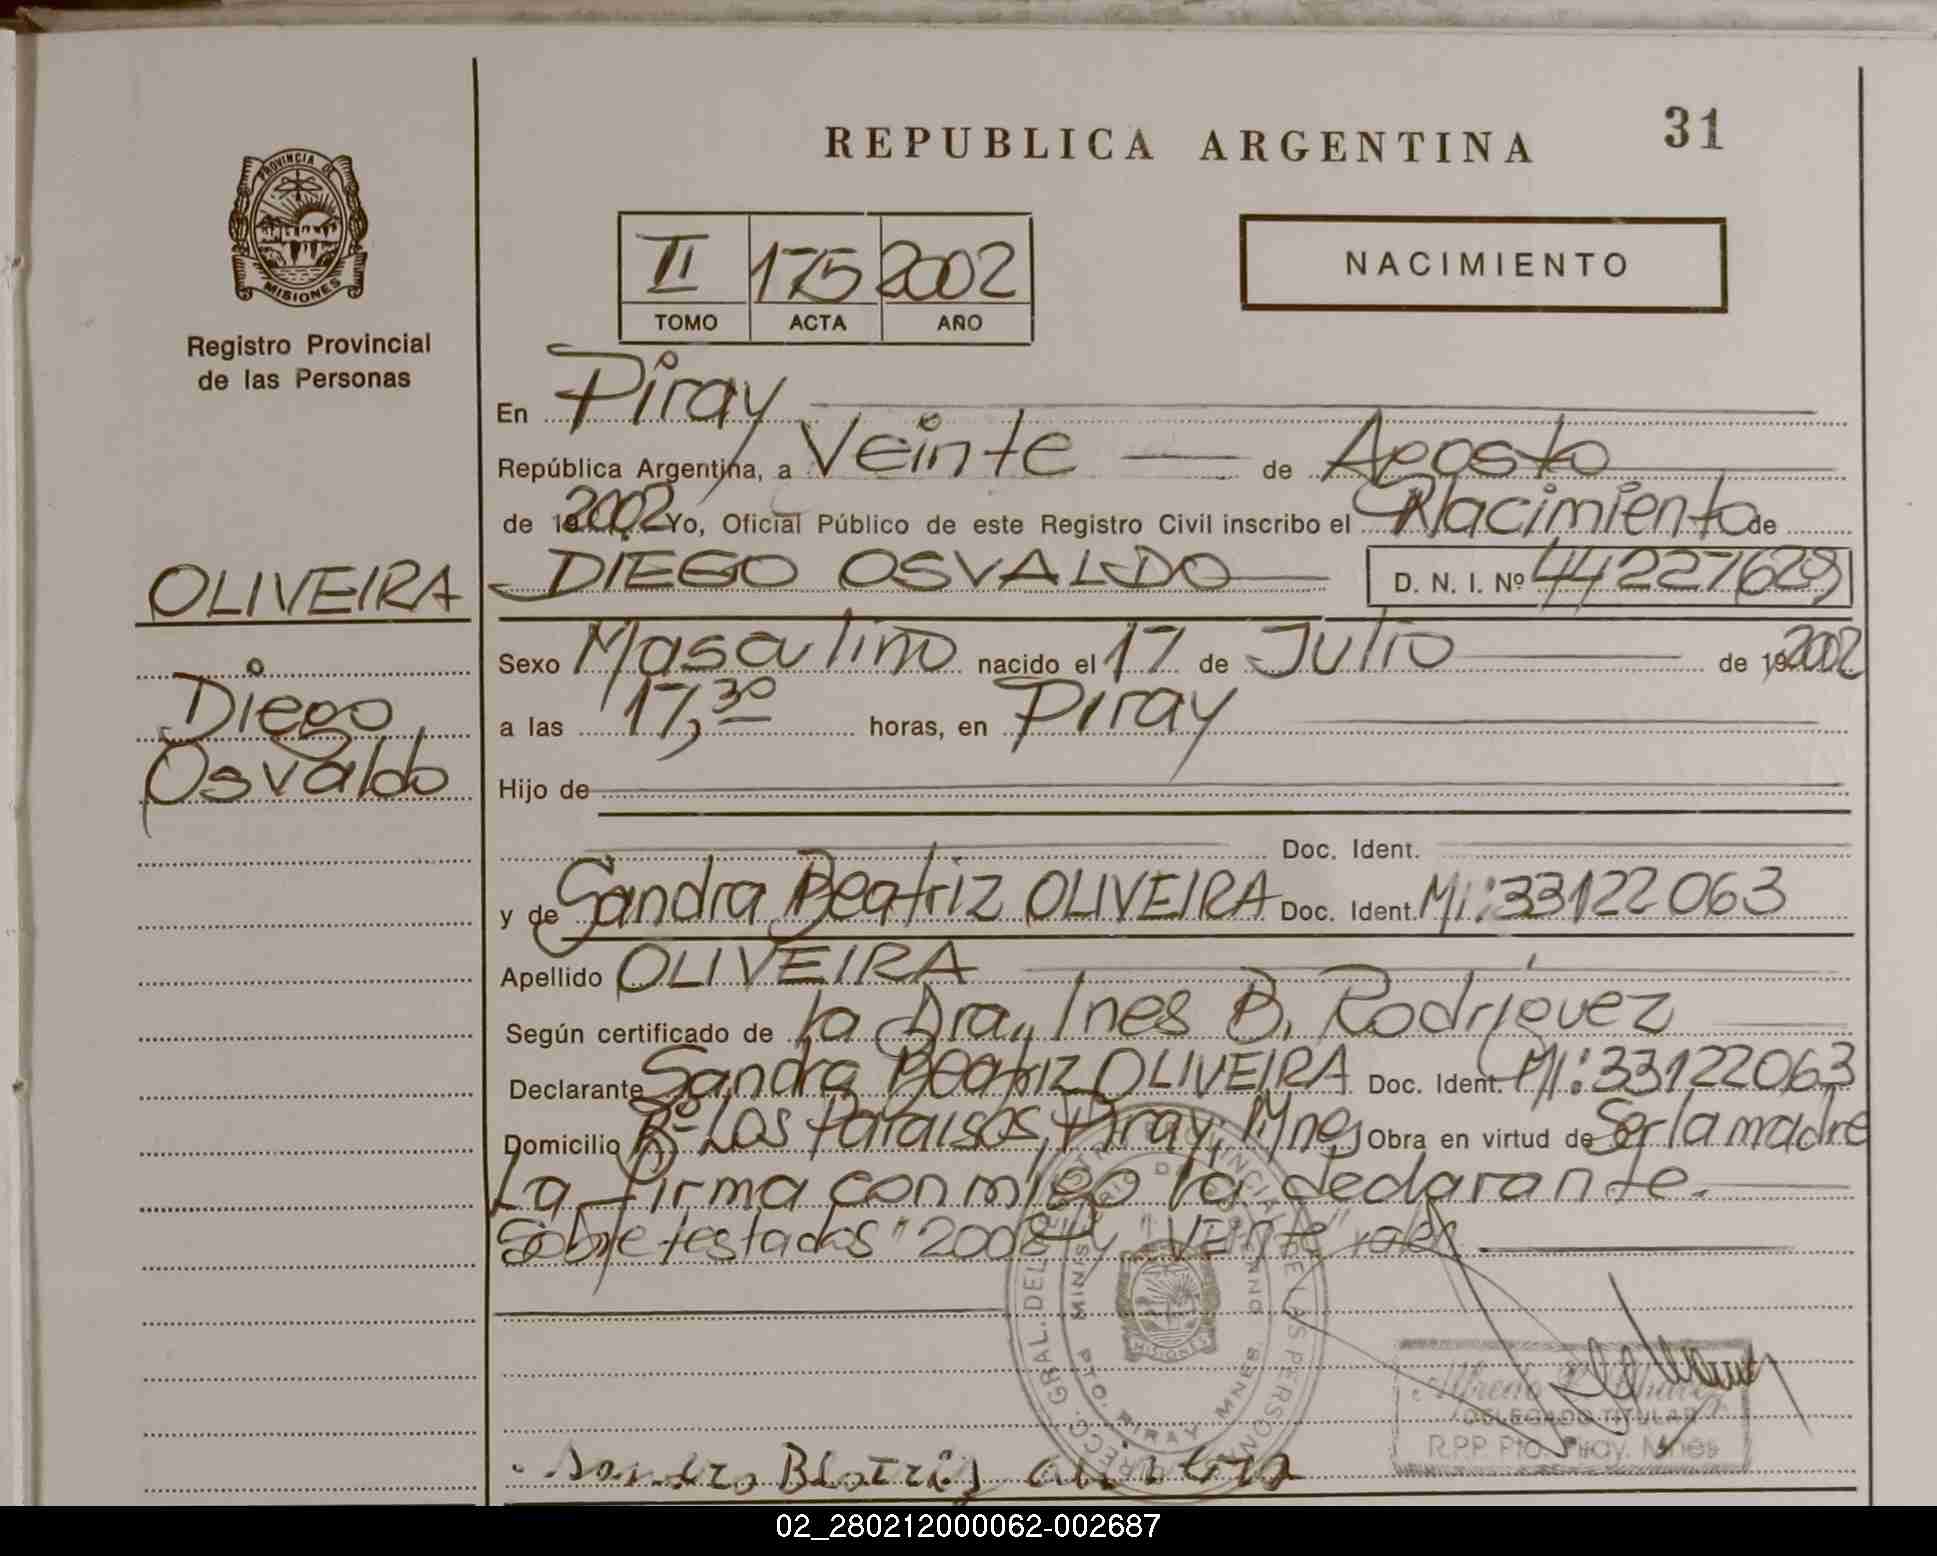 REPUBLICA ARGENTINA
31
PROVINCIA DE
MISIONES
Registro Provincial
de las Personas
II 175 2002
TOMO ACTA AÑO
NACIMIENTO
En Piray
República Argentina, a Veinte de Agosto
de 19 2002 Yo, Oficial Público de este Registro Civil inscribo el Nacimiento de
OLIVEIRA
Diego
Osvaldo
DIEGO OSVALDO D. N. I. Nº 44227629
Sexo Masculino nacido el 17 de Julio de 19 2002
a las 17,30 horas, en Piray
Hijo de
Doc. Ident.
y de Sandra Beatriz OLIVEIRA Doc. Ident. MI: 33122063
Apellido OLIVEIRA
Según certificado de la Dra. Ines B. Rodríguez
Declarante Sandra Beatriz OLIVEIRA Doc. Ident. MI: 33122063
Domicilio Bº Los Paraisos, Piray, Mnes Obra en virtud de Ser la madre
La firma conmigo la declarante.
Sobre testados "2002" y "Veinte" valen
PTO. PIRAY. MNES.
MISIONES
DELEGADO TITULAR
R.P.P. Pto. Piray. Mnes
02_280212000062-002687